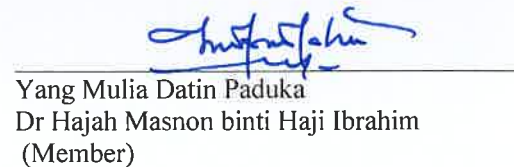 Yang Mulia Datin Paduka
Dr Hajah Masnon binti Haji Ibrahim
(Member)